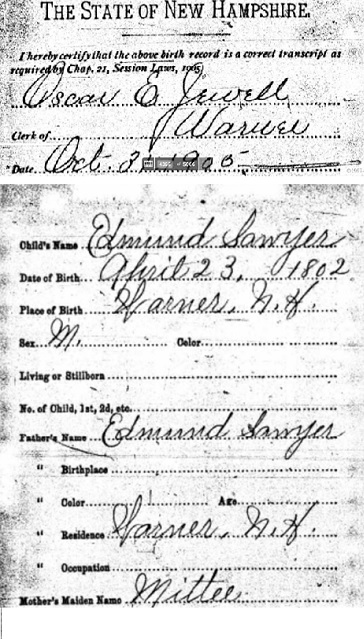 THE STATE OF NEW HAMPSHIRE.
I hereby certify that the above birth record is a correct transcript as
required by Chap. 21, Session Laws, 1905
Oscar E. Jewell
Clerk of Warner
*Date Oct. 1905
Child's Name Edmund Sawyer
Date of Birth April 23, 1802
Place of Birth Warner, N.H.
Sex M. Color
Living or Stillborn
No. of Child, 1st, 2d, etc.
Father's Name Edmund Sawyer
" Birthplace
" Color Age
" Residence Warner, N.H.
" Occupation
Mother's Maiden Name